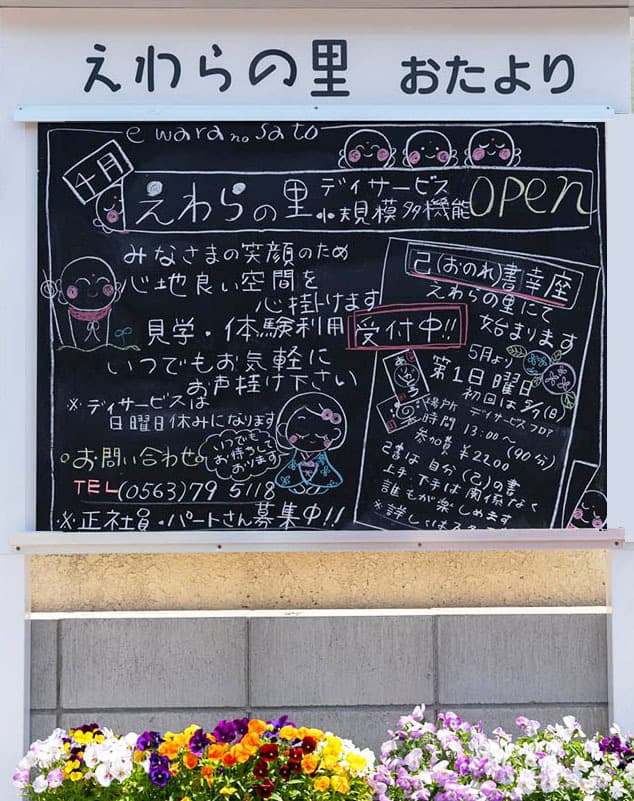 えわらの里 おたより
ewara no sato
4月
えわらの里 デイサービス 小規模多機能 open
みなさまの笑顔のため
心地良い空間を
心掛けます
見学・体験利用 受付中!!
いつでもお気軽に
お声掛け下さい
※デイサービスは
日曜日休みになります
お問い合わせ
いつでも
お待ちして
おります
TEL (0563)79 5118
※正社員・パートさん募集中!!
己(おのれ)書幸座
えわらの里にて
始まります
5月より
第1日曜日
初回は5/7(日)
場所 デイサービスフロア
時間 13:00〜(90分)
参加費 ¥2200
己書は自分(己)の書
上手、下手は関係なく
誰もが楽しめます
※詳しくはスタッ